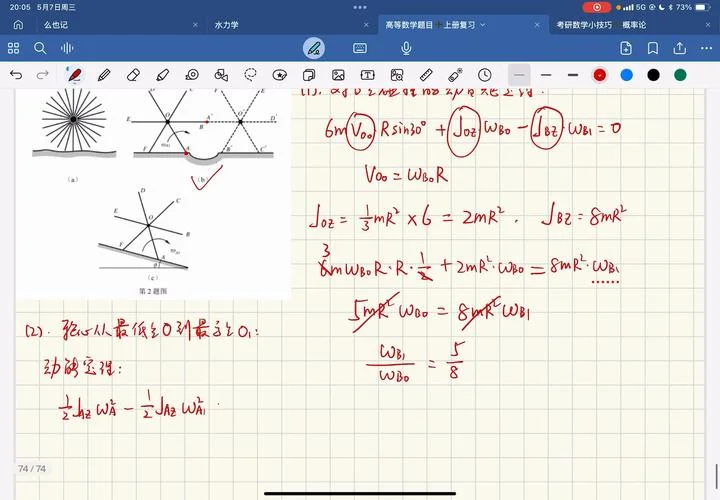 20:05 5月7日周三
5G 73%
么也记 × 水力学 × 高等数学题目➕上册复习 考研数学小技巧 概率论
D' E O A' B O' D'
F A B' C'
(a) (b)
D C E O B F A
(c)
第2题图
6m V₀₀ R sin30° + J_OZ ω_B0 − J_BZ · ω_B1 = 0
V₀₀ = ω_B0 R
J_OZ = 1/3 mR² × 6 = 2mR² . J_BZ = 8mR²
3
6mω_B0 R · R · 1/2 + 2mR² · ω_B0 = 8mR² · ω_B1
5mR² ω_B0 = 8mR² ω_B1
ω_B1/ω_B0 = 5/8
(2). 轮心从最低点O到最高点O₁:
动能定理:
1/2 J_AZ ω_A² − 1/2 J_AZ ω_A1²
74 / 74